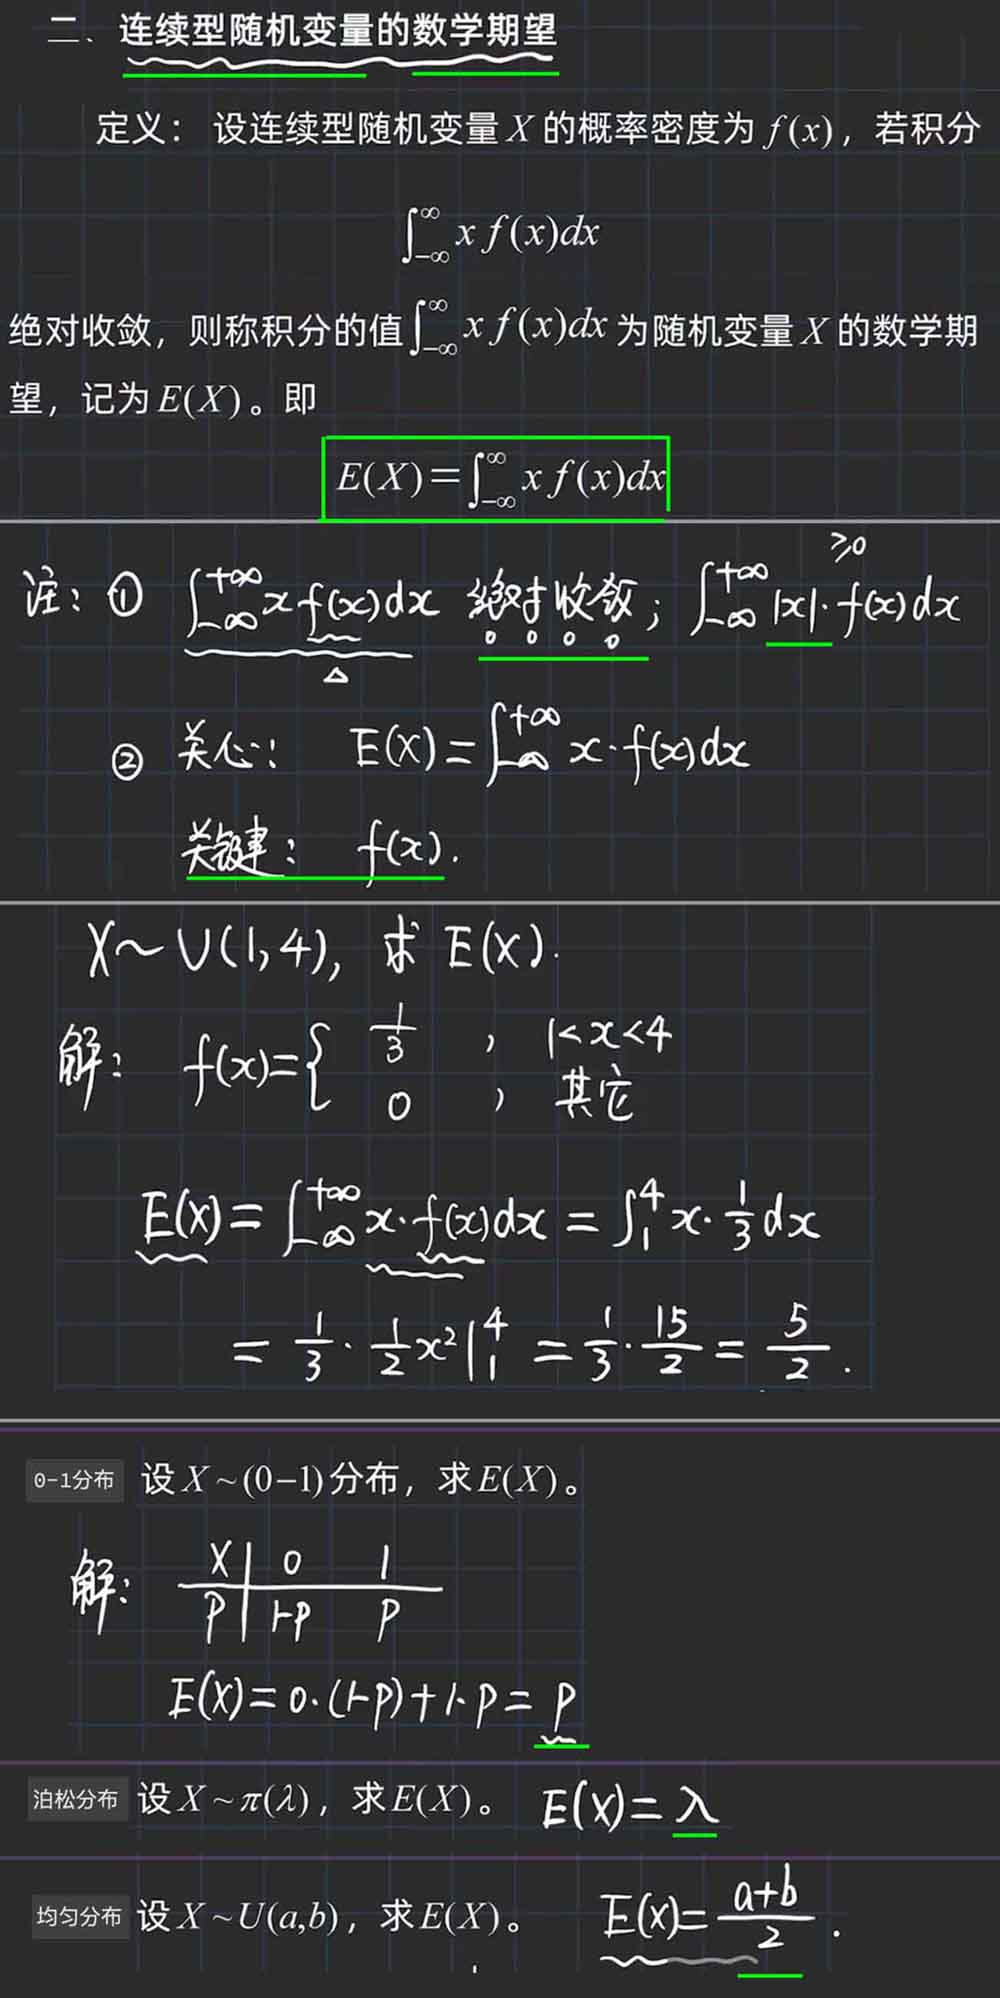 二、连续型随机变量的数学期望
定义： 设连续型随机变量 X 的概率密度为 f(x)，若积分
∫_{-∞}^{∞} x f(x)dx
绝对收敛，则称积分的值∫_{-∞}^{∞} x f(x)dx 为随机变量 X 的数学期
望，记为 E(X)。即
E(X)=∫_{-∞}^{∞} x f(x)dx
注：① ∫_{-∞}^{+∞} x f(x)dx 绝对收敛；∫_{-∞}^{+∞} |x|·f(x)dx ≥0
② 关心： E(X)=∫_{-∞}^{+∞} x·f(x)dx
关键： f(x).
X~U(1,4)，求 E(X).
解： f(x)={ 1/3 ， 1<x<4
0 ， 其它
E(X)=∫_{-∞}^{+∞} x·f(x)dx = ∫_1^4 x·1/3 dx
= 1/3 · 1/2 x²|_1^4 = 1/3 · 15/2 = 5/2 .
0-1分布 设 X~(0-1)分布，求E(X)。
解： X | 0 1
P | 1-P P
E(X)=0·(1-P)+1·P=P
泊松分布 设 X~π(λ)，求E(X)。 E(X)=λ
均匀分布 设 X~U(a,b)，求E(X)。 E(X)=a+b/2 .